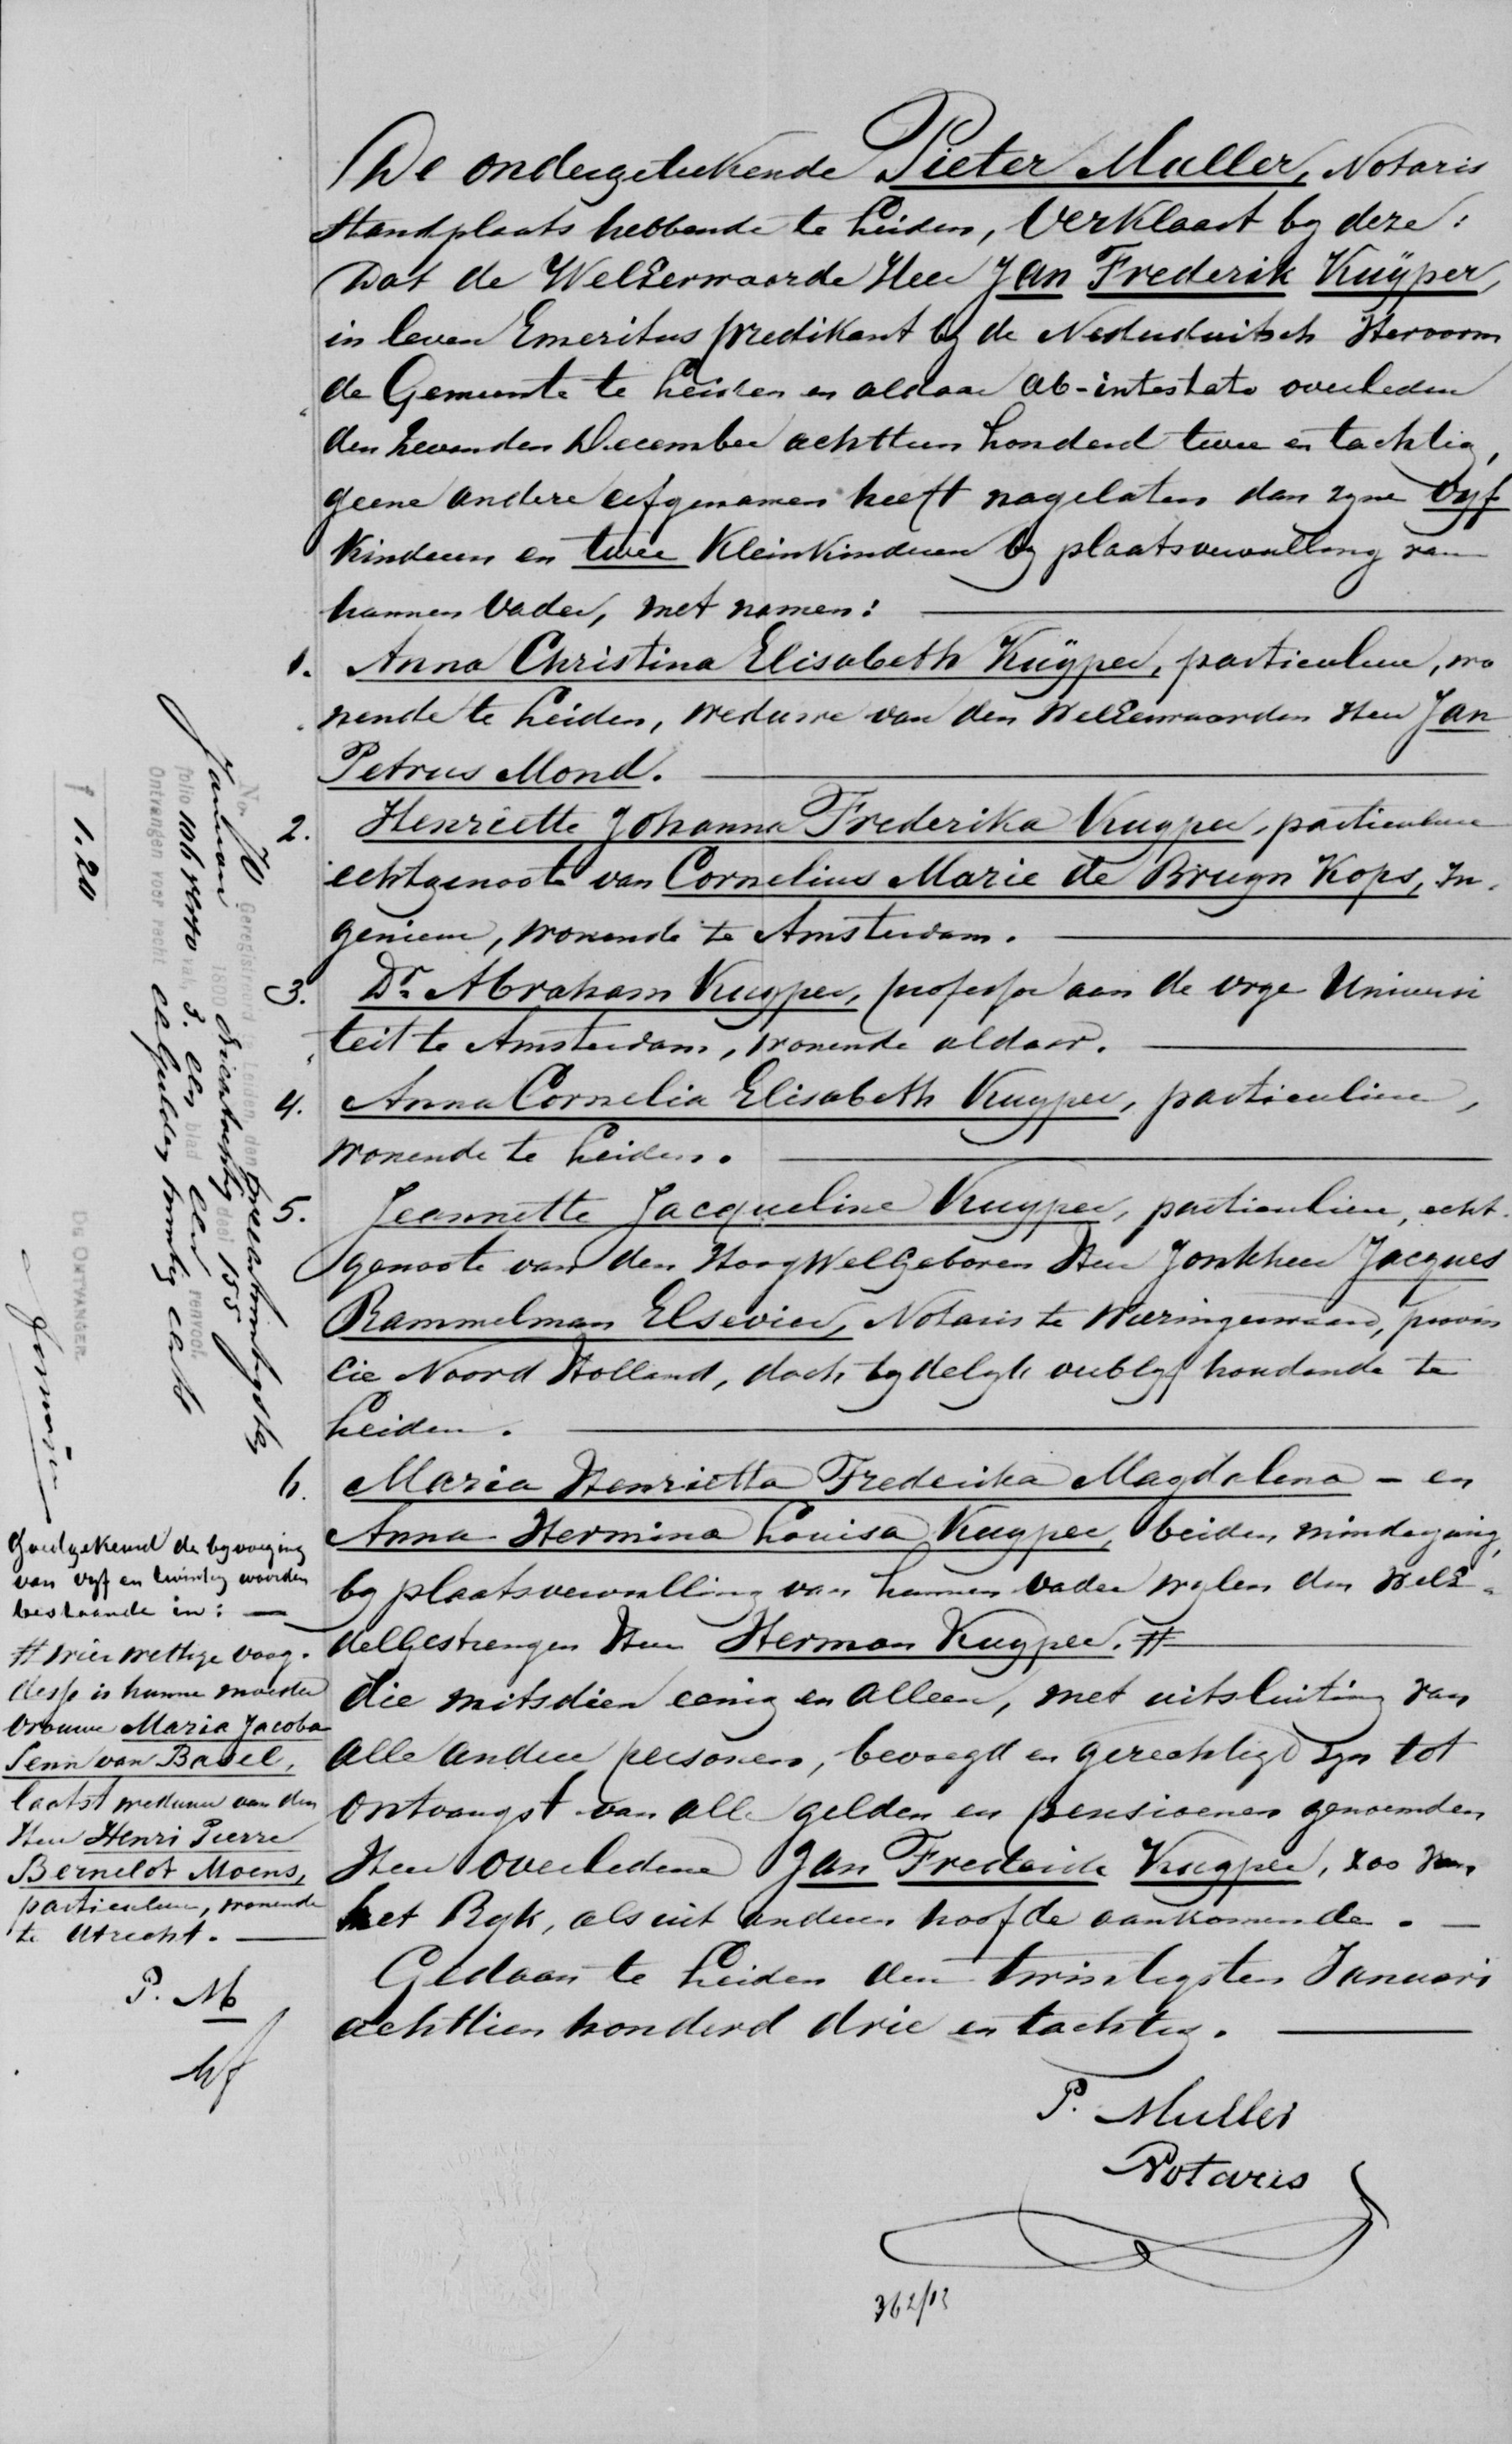 De ondergeteekende Pieter Muller, Notaris
Standplaats hebbende te Leiden, Verklaart by deze:
Dat de WelEerwaarde Heer Jan Frederik Kuÿper,
in leven Emeritus predikant by de Nederduitsch Hervorm
de Gemeente te Leiden en aldaar ab-intestato overleden
den zevenden December achttien honderd twee en tachtig,
geene andere erfgenamen heeft nagelaten dan zyne vyf
kinderen en twee Kleinkinderen by plaatsvervulling van
hunnen Vader, met namen:
1. Anna Christina Elisabeth Kuÿper, particuliere, wo
nende te Leiden, weduwe van den WelEerwaarden Heer Jan
Petrus Mond.
2. Henriette Johanna Frederika Kuyper, particuliere
echtgenoote van Cornelius Marie de Bruyn Kops, In-
genieur, wonende te Amsterdam.
3. Dr. Abraham Kuyper, professor aan de vrye Universi
teit te Amsterdam, wonende aldaar.
4. Anna Cornelia Elisabeth Kuyper, particuliere,
wonende te Leiden.
5. Jeannette Jacqueline Kuyper, particuliere, echt-
genoote van den HoogWelGeboren Heer Jonkheer Jacques
Rammelman Elsevier, Notaris te Wieringerwaard, provin
cie Noord Holland, doch tydelyk verblyf houdende te
Leiden.
6. Maria Henrietta Frederika Magdalena - en
Anna Hermina Louisa Kuyper, beiden minderjarig,
by plaatsvervulling van hunnen vader wylen den WelE-
delGestrengen Heer Herman Kuyper. #
die mitsdien eenig en alleen, met uitsluiting van
alle andere personen, bevoegd en gerechtigd zyn tot
ontvangst van alle gelden en pensioenen genoemden
Heer overledene Jan Frederik Kuyper, zoo van
het Ryk, als uit anderen hoofde aankomende.
Gedaan te Leiden den twintigsten Januari
achttien honderd drie en tachtig.
P. Muller
Notaris
362/13
Goedgekeurd de byvoeging
van vyf en twintig woorden
bestaande in:
# wier wettige voog-
desse is hunne moeder
Vrouwe Maria Jacoba
Senn van Basel,
laatst weduwe van den
Heer Henri Pierre
Bernelot Moens,
particuliere, wonende
te Utrecht.
P. M
No. Geregistreerd te Leiden den
Januari 1800 drientachtig deel 155
folio 106 verso vak 3. een blad een renvooi.
Ontvangen voor recht een gulden twintig cent
f 1.20
De Ontvanger.